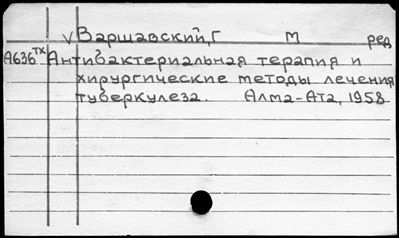 v Варшавский, Г М ред
А636тх Антибактериальная терапия и
хирургические методы лечения
туберкулеза. Алма-Ата, 1958